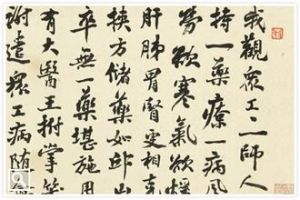 我觀衆工一一師人
持一藥療一病風
勞欲寒氣欲煖
肝肺胃腎更相
挾方儲藥如丘山
卒無一藥堪施用
有大醫王拊掌笑
謝遣衆工病隨